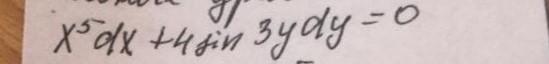 x⁵dx + 4 sin 3y dy = 0